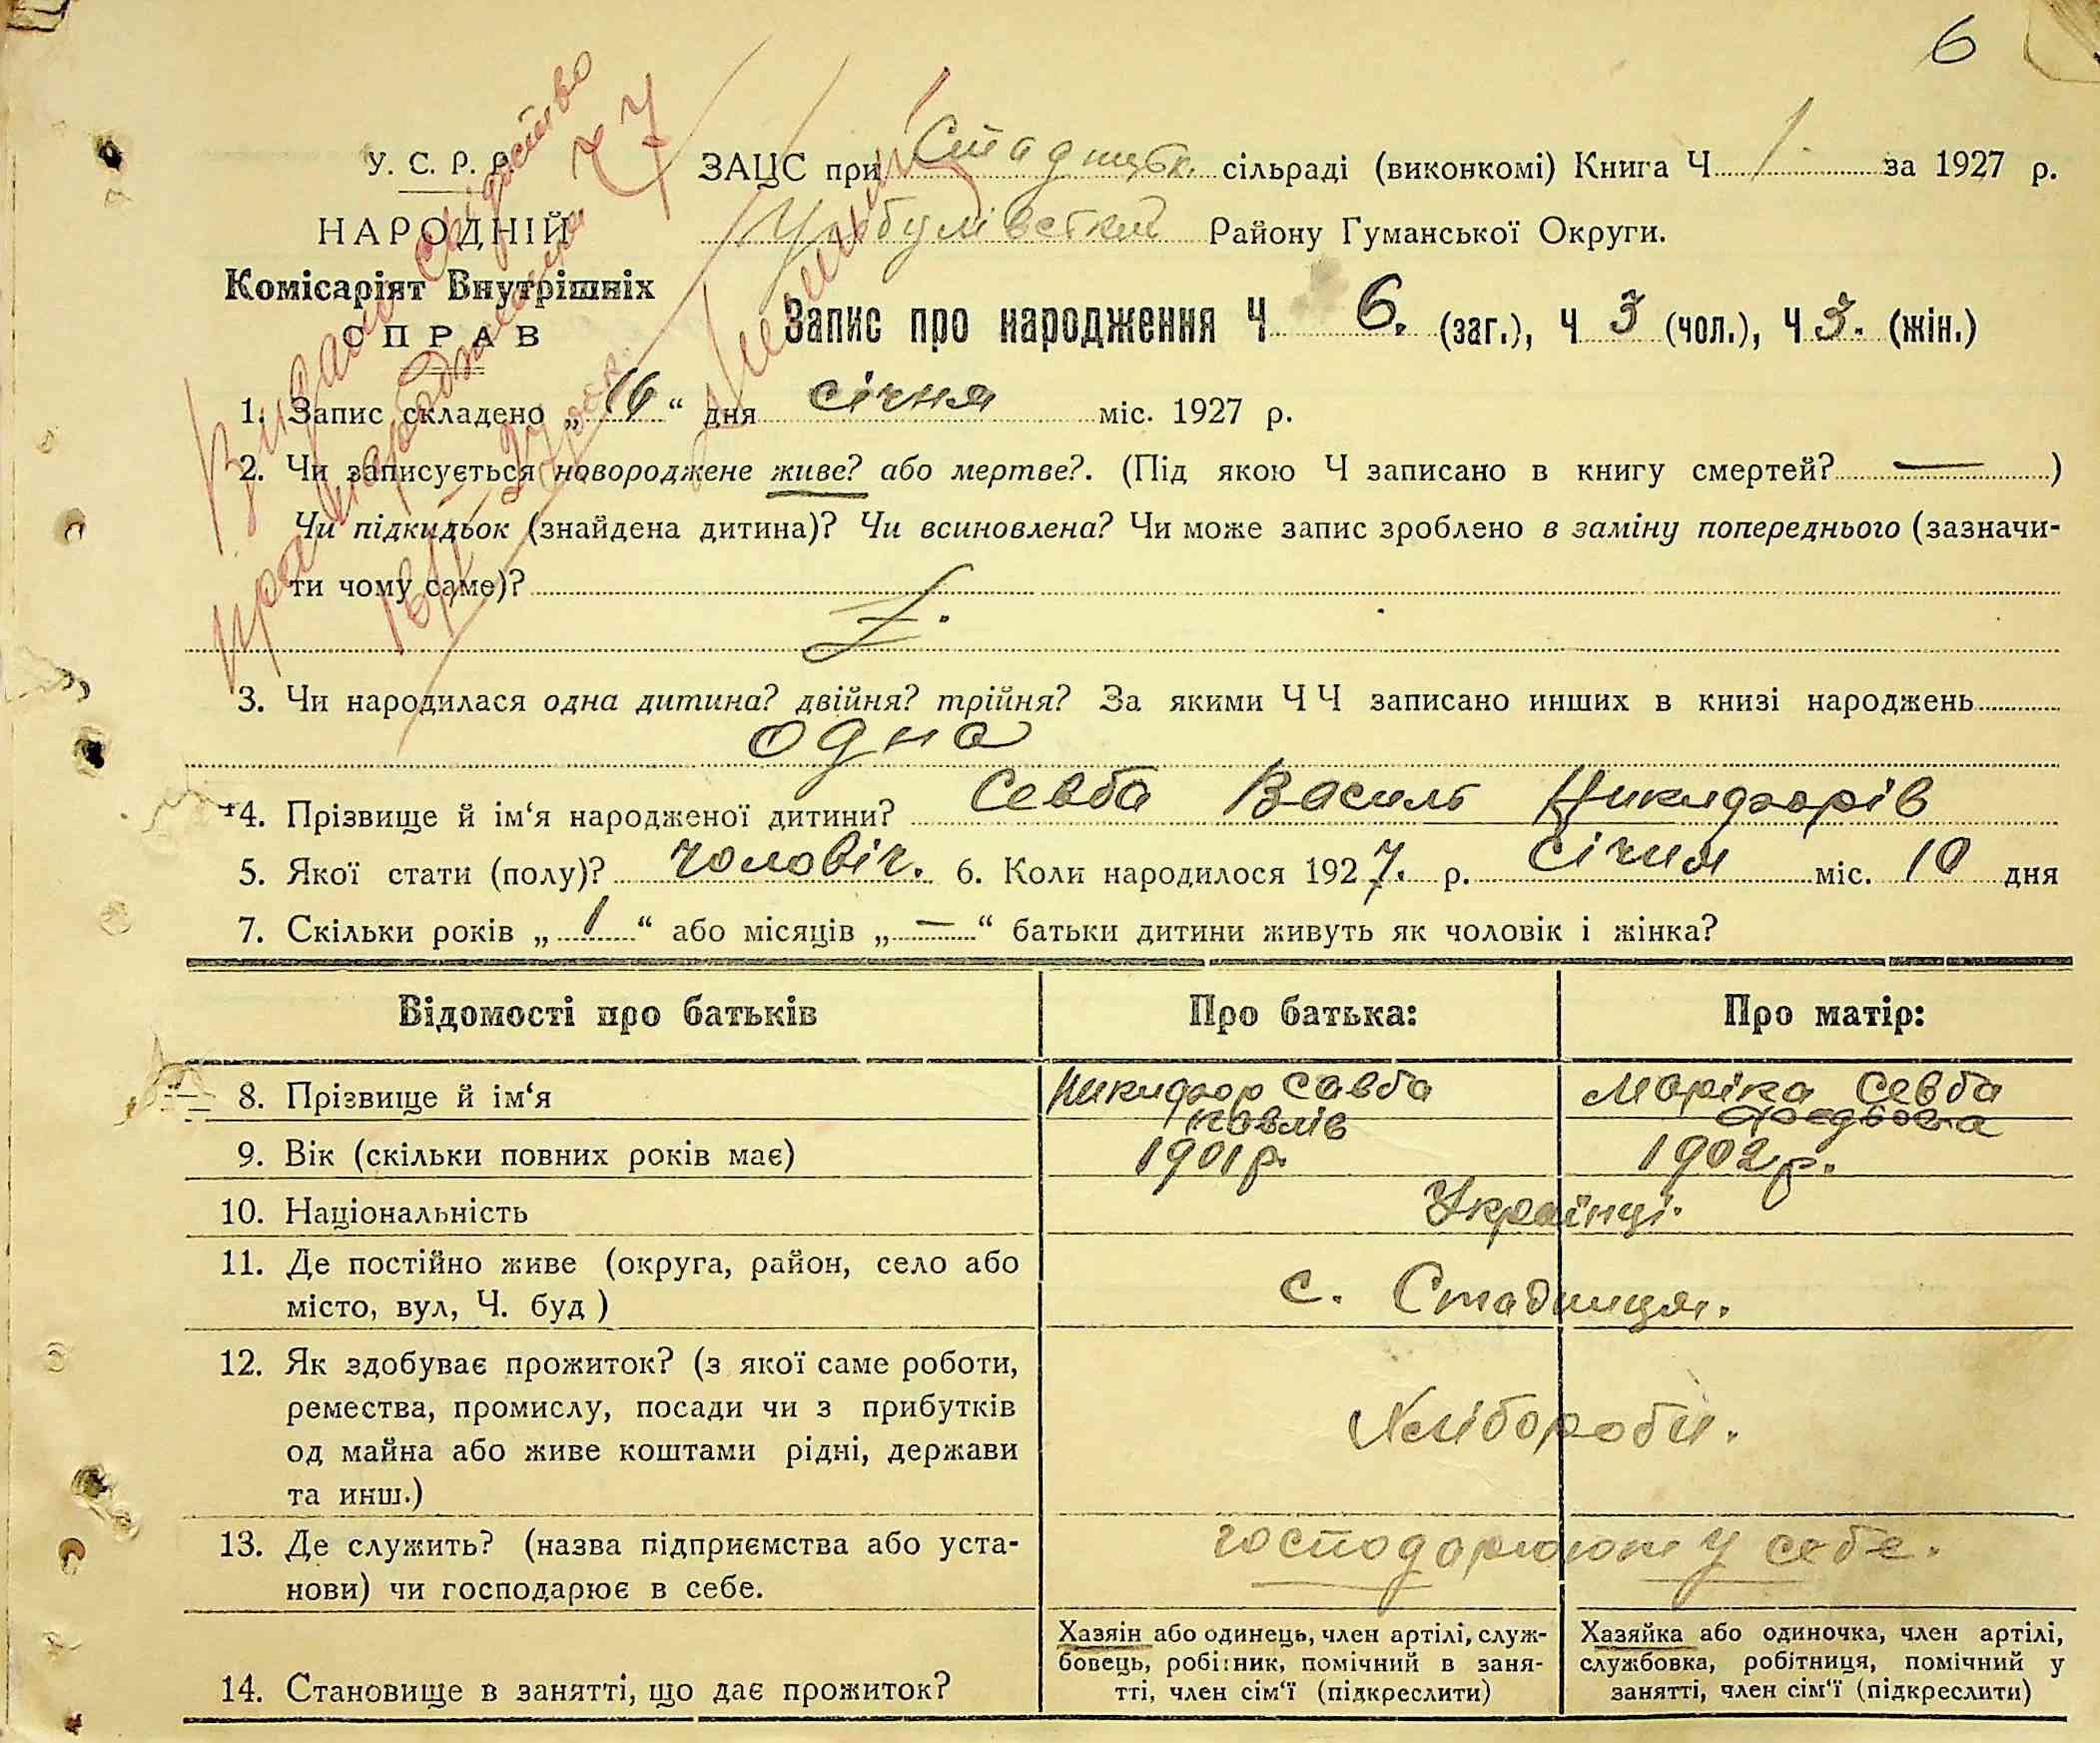 6
У. С. Р. Р.
НАРОДНІЙ
Комісаріят Внутрішніх
СПРАВ
Видано свідоцтво
про народження
Ч 7
ЗАЦС при Стадницьк. сільраді (виконкомі) Книга Ч 1. за 1927 р.
Району Гуманської Округи.
Запис про народження Ч 6. (заг.), Ч 3 (чол.), Ч 3. (жін.)
1. Запис складено „ 16 “ дня січня міс. 1927 р.
2. Чи записується новороджене живе? або мертве?. (Під якою Ч записано в книгу смертей? — )
Чи підкидьок (знайдена дитина)? Чи всиновлена? Чи може запис зроблено в заміну попереднього (зазначи-
ти чому саме)?
3. Чи народилася одна дитина? двійня? трійня? За якими Ч Ч записано инших в книзі народжень
одна
4. Прізвище й ім‘я народженої дитини? Севба Василь Никифорів
5. Якої стати (полу)? чоловіч. 6. Коли народилося 1927. р. січня міс. 10 дня
7. Скільки років „ 1 “ або місяців „ — “ батьки дитини живуть як чоловік і жінка?
Відомості про батьків Про батька: Про матір:
8. Прізвище й ім‘я Никифор Савба Павлів Маріка Севба
9. Вік (скільки повних років має) 1901 р. 1902 р.
10. Національність Українці.
11. Де постійно живе (округа, район, село або
місто, вул, Ч. буд ) с. Стадниця.
12. Як здобуває прожиток? (з якої саме роботи,
ремества, промислу, посади чи з прибутків
од майна або живе коштами рідні, держави
та инш.) Хлібороби.
13. Де служить? (назва підприємства або уста-
нови) чи господарює в себе. господарюють у себе.
14. Становище в занятті, що дає прожиток?
Хазяін або одинець, член артілі, служ-
бовець, робітник, помічний в заня-
тті, член сім‘ї (підкреслити)
Хазяйка або одиночка, член артілі,
службовка, робітниця, помічний у
занятті, член сім‘ї (підкреслити)